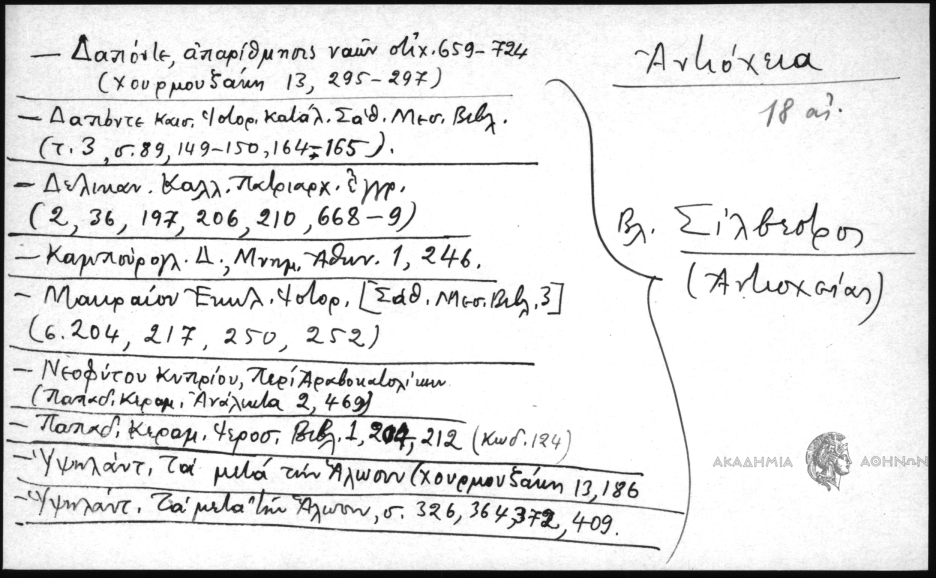 Ἀντιόχεια
18 αἰ.
— Δαπόντε, ἀπαρίθμησις ναῶν στίχ. 659-724
(Χουρμουζάκη 13, 295-297)
— Δαπόντε Καισ. Ἱστορ. Κατάλ. Σάθ. Μεσ. Βιβλ.
(τ. 3, σ. 89, 149-150, 164-165).
— Δελικαν. Καλλ. Πατριαρχ. ἔγγρ.
(2, 36, 197, 206, 210, 668-9)
— Καμπούρογλ. Δ., Μνημ. Ἀθην. 1, 246.
— Μακραίου Ἐκκλ. Ἱστορ. [Σάθ. Μεσ. Βιβλ. 3]
(σ. 204, 217, 250, 252)
— Νεοφύτου Κυπρίου, Περί Ἀραβοκατολίκων
(Παπαδ. Κεραμ. Ἀνάλεκτα 2, 469)
— Παπαδ. Κεραμ. Ἱεροσ. Βιβλ. 1, 204, 212 (κωδ. 124)
— Ὑψηλάντ. Τά μετά τήν Ἅλωσιν (Χουρμουζάκη 13, 186
— Ὑψηλάντ. Τά μετά τήν Ἅλωσιν, σ. 326, 364, 372, 409.
Βλ. Σίλβεστρος
(Ἀντιοχείας)
ΑΚΑΔΗΜΙΑ ΑΘΗΝΩΝ